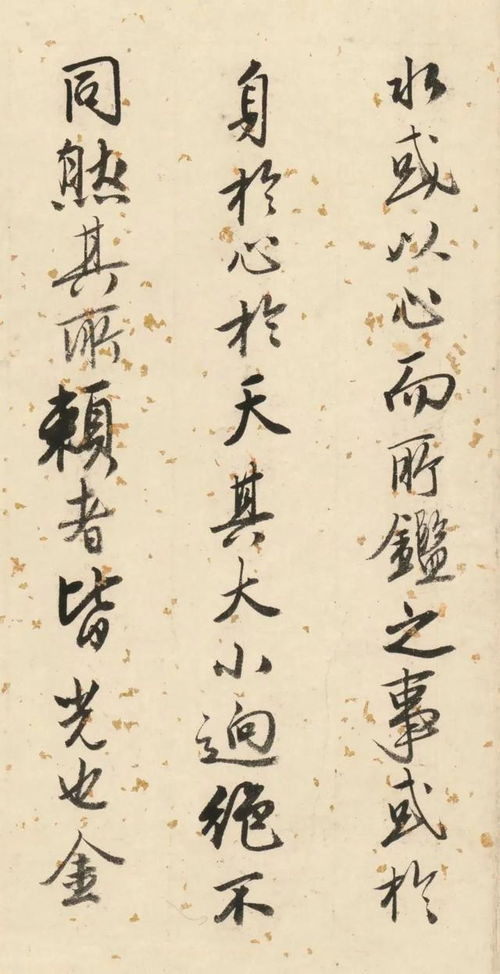 水或以心而所鑑之事或於
身於心於天其大小逈絶不
同然其所頼者皆光也金